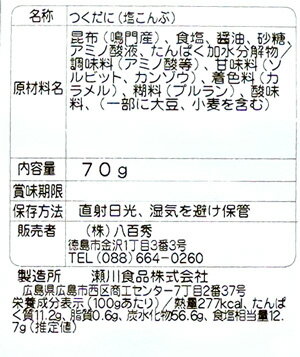 名称 つくだに（塩こんぶ）
原材料名 昆布（鳴門産）、食塩、醤油、砂糖、
アミノ酸液、たんぱく加水分解物／
調味料（アミノ酸等）、甘味料（ソ
ルビット、カンゾウ）、着色料（カ
ラメル）、糊料（プルラン）、酸味
料、（一部に大豆、小麦を含む）
内容量 70g
賞味期限
保存方法 直射日光、湿気を避け保管
販売者 （株）八百秀
徳島市金沢1丁目3番3号
TEL(088)664-0260
製造所 瀬川食品株式会社
広島県広島市西区商工センター7丁目2番37号
栄養成分表示（100gあたり）／熱量277kcal、たんぱ
く質11.2g、脂質0.6g、炭水化物56.6g、食塩相当量12.
7g（推定値）